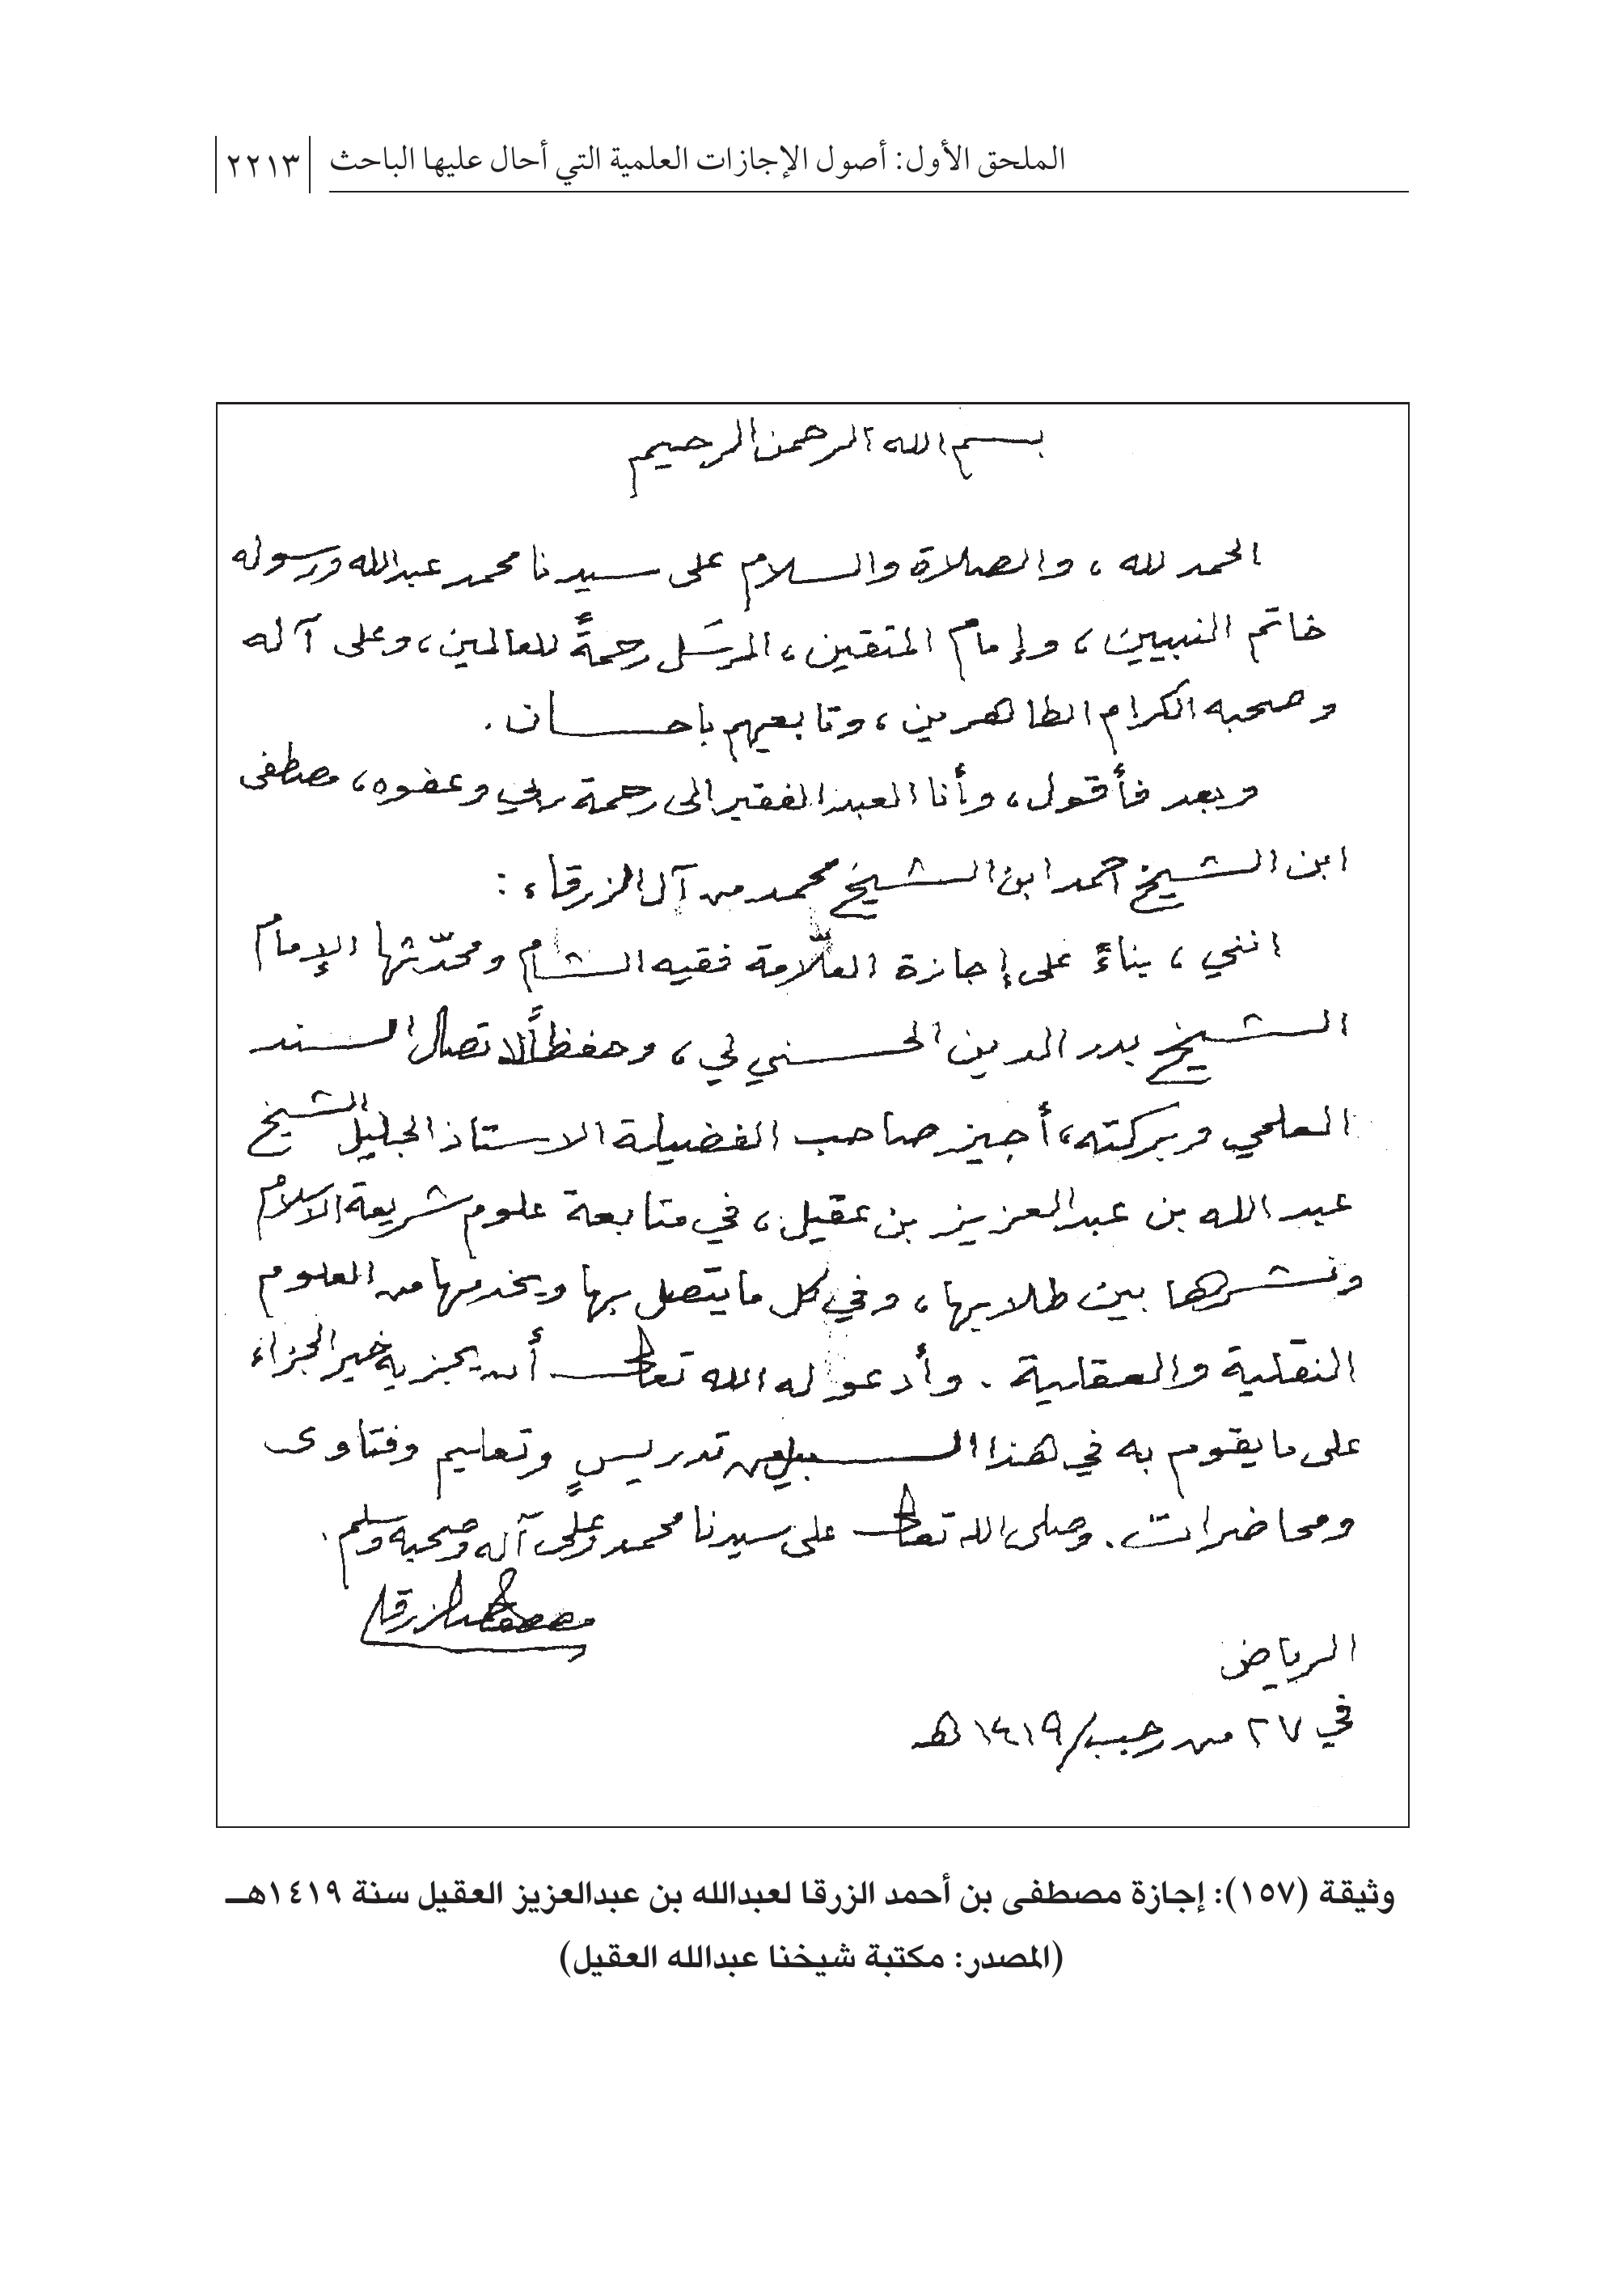 الملحق الأول: أصول الإجازات العلمية التي أحال عليها الباحث ٢٢١٣
بسم الله الرحمن الرحيم
الحمد لله ، والصلاة والسلام على سيدنا محمد عبدالله ورسوله
خاتم النبيين ، وإمام المتقين ، المرسَل رحمةً للعالمين ، وعلى آله
وصحبه الكرام الطاهرين ، وتابعيهم باحسان .
وبعد فأقول ، وأنا العبد الفقير الى رحمة ربي وعفوه ، مصطفى
ابن الشيخ احمد ابن الشيخ محمد من آل الزرقاء :
انني ، بناءً على إجازة العلّامة فقيه الشام ومحدّثها الإمام
الشيخ بدر الدين الحسني لي ، وحفظاً لاتصال السند
العلمي وبركته ، أجيز صاحب الفضيلة الاستاذ الجليل الشيخ
عبد الله بن عبد العزيز بن عقيل ، في متابعة علوم شريعة الاسلام
ونشرها بين طلابها ، وفي كل ما يتصل بها ويخدمها من العلوم
النقلية والعقلية . وأدعو له الله تعالى أن يجزيه خير الجزاء
على ما يقوم به في هذا السبيل من تدريسٍ وتعليم وفتاوى
ومحاضرات . وصلى الله تعالى على سيدنا محمد وعلى آله وصحبه وسلم .
مصطفى احمد الزرقا
الرياض
في ٢٧ من رجب/١٤١٩ هـ
وثيقة (١٥٧): إجازة مصطفى بن أحمد الزرقا لعبدالله بن عبدالعزيز العقيل سنة ١٤١٩هـ
(المصدر: مكتبة شيخنا عبدالله العقيل)